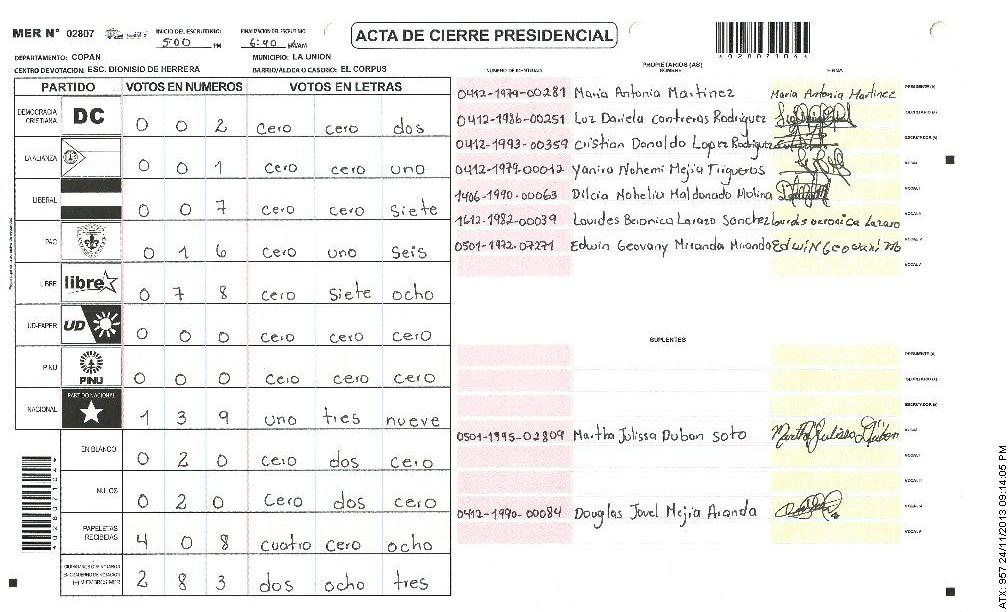 MER N° 02807
INICIO DEL ESCRUTINIO:
5:00 PM
FINALIZACION DEL ESCRUTINIO
6:40
ACTA DE CIERRE PRESIDENCIAL
DEPARTAMENTO: COPAN
MUNICIPIO: LA UNION
CENTRO DE VOTACION: ESC. DIONISIO DE HERRERA
BARRIO/ALDEA O CASERIO: EL CORPUS
PARTIDO VOTOS EN NUMEROS VOTOS EN LETRAS
DEMOCRACIA CRISTIANA DC 0 0 2 cero cero dos
LA ALIANZA 0 0 1 cero cero uno
LIBERAL 0 0 7 cero cero siete
PAC 0 1 6 cero uno seis
LIBRE libre 0 7 8 cero siete ocho
UD-FAPER UD 0 0 0 cero cero cero
PINU PINU 0 0 0 cero cero cero
NACIONAL PARTIDO NACIONAL 1 3 9 uno tres nueve
EN BLANCO 0 2 0 cero dos cero
NULOS 0 2 0 cero dos cero
PAPELETAS RECIBIDAS 4 0 8 cuatro cero ocho
CIUDADANOS QUE VOTARON EN CUADERNO DE VOTACION (+) MIEMBROS MER 2 8 3 dos ocho tres
PROPIETARIOS (AS)
NUMERO DE IDENTIDAD NOMBRE FIRMA
0412-1979-00281 Maria Antonia Martinez Maria Antonia Martinez PRESIDENTE (A)
0412-1986-00251 Luz Daniela Contreras Rodriguez SECRETARIO (A)
0412-1993-00359 Cristian Donaldo Lopez Rodriguez ESCRUTADOR (A)
0412-1979-00012 Yanira Nohemi Mejia Trigueros VOCAL I
1406-1990-00063 Dilcia Nohelia Maldonado Molina
1612-1982-00039 Lourdes Beronica Larazo Sanchez Lourdes veronica Lazaro
0501-1972-07271 Edwin Geovany Miranda Miranda
SUPLENTES
PRESIDENTE (A)
SECRETARIO (A)
ESCRUTADOR (A)
0501-1995-02809 Martha Julissa Dubon Soto Martha Julissa Dubon
0412-1990-00084 Douglas Jovel Mejia Aranda
ATX: 957 24/11/2013 09:14:05 PM